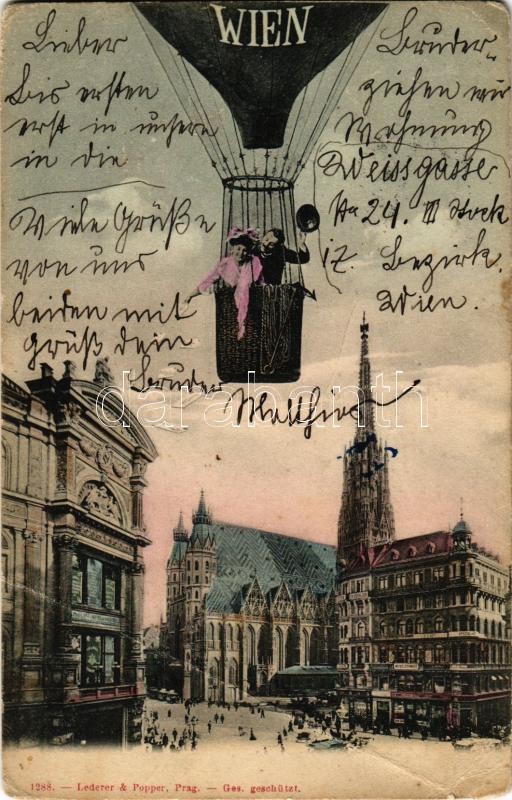 WIEN
Lieber Bruder,
Bis ersten ziehen wir
erst in unsere Wohnung
in die Weissgasse
No 24. III Stock
17. Bezirk.
Wien.
Viele Grüße
von uns
beiden mit
grüß dein
Bruder
Matthias
darabanth
1288. — Lederer & Popper, Prag. — Ges. geschützt.